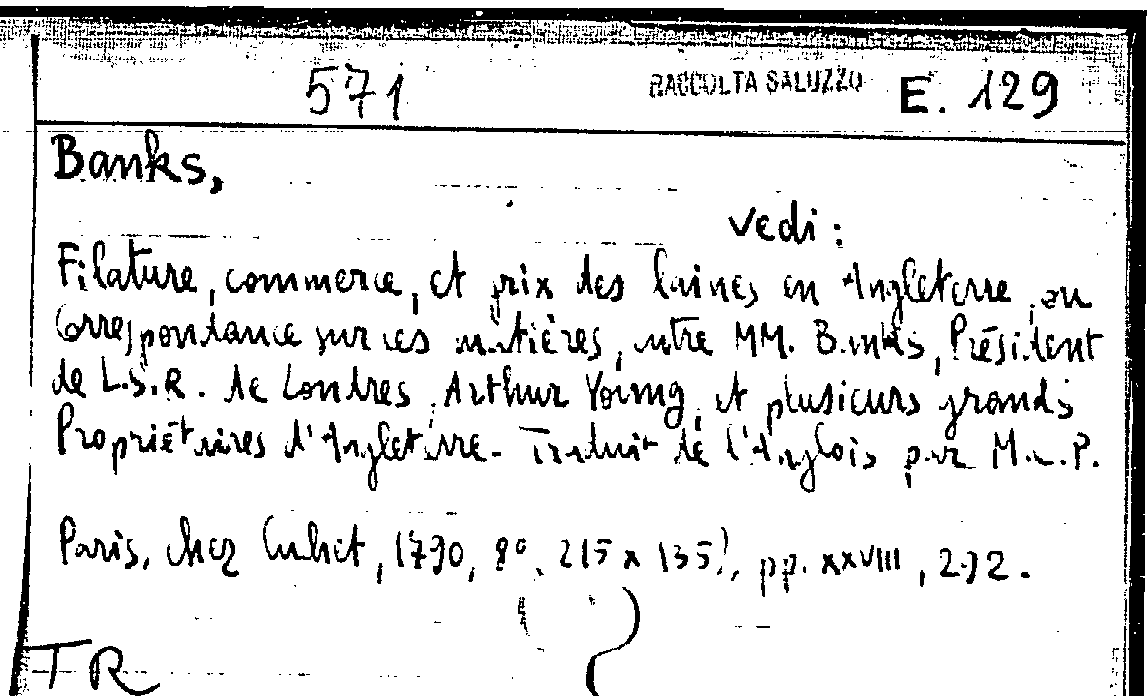 571 RACCOLTA SALUZZO E. 129
Banks,
vedi:
Filature, commerce, et prix des laines en Angleterre, ou
Correspondance sur ces matières, entre MM. Banks, Président
de L.S.R. de Londres, Arthur Young, et plusieurs grands
Propriétaires d'Angleterre. Traduit de l'Anglois par M.C.P.
Paris, chez Cuchet, 1790, 8°, 215 x 135), pp. XXVIII, 292.
TR